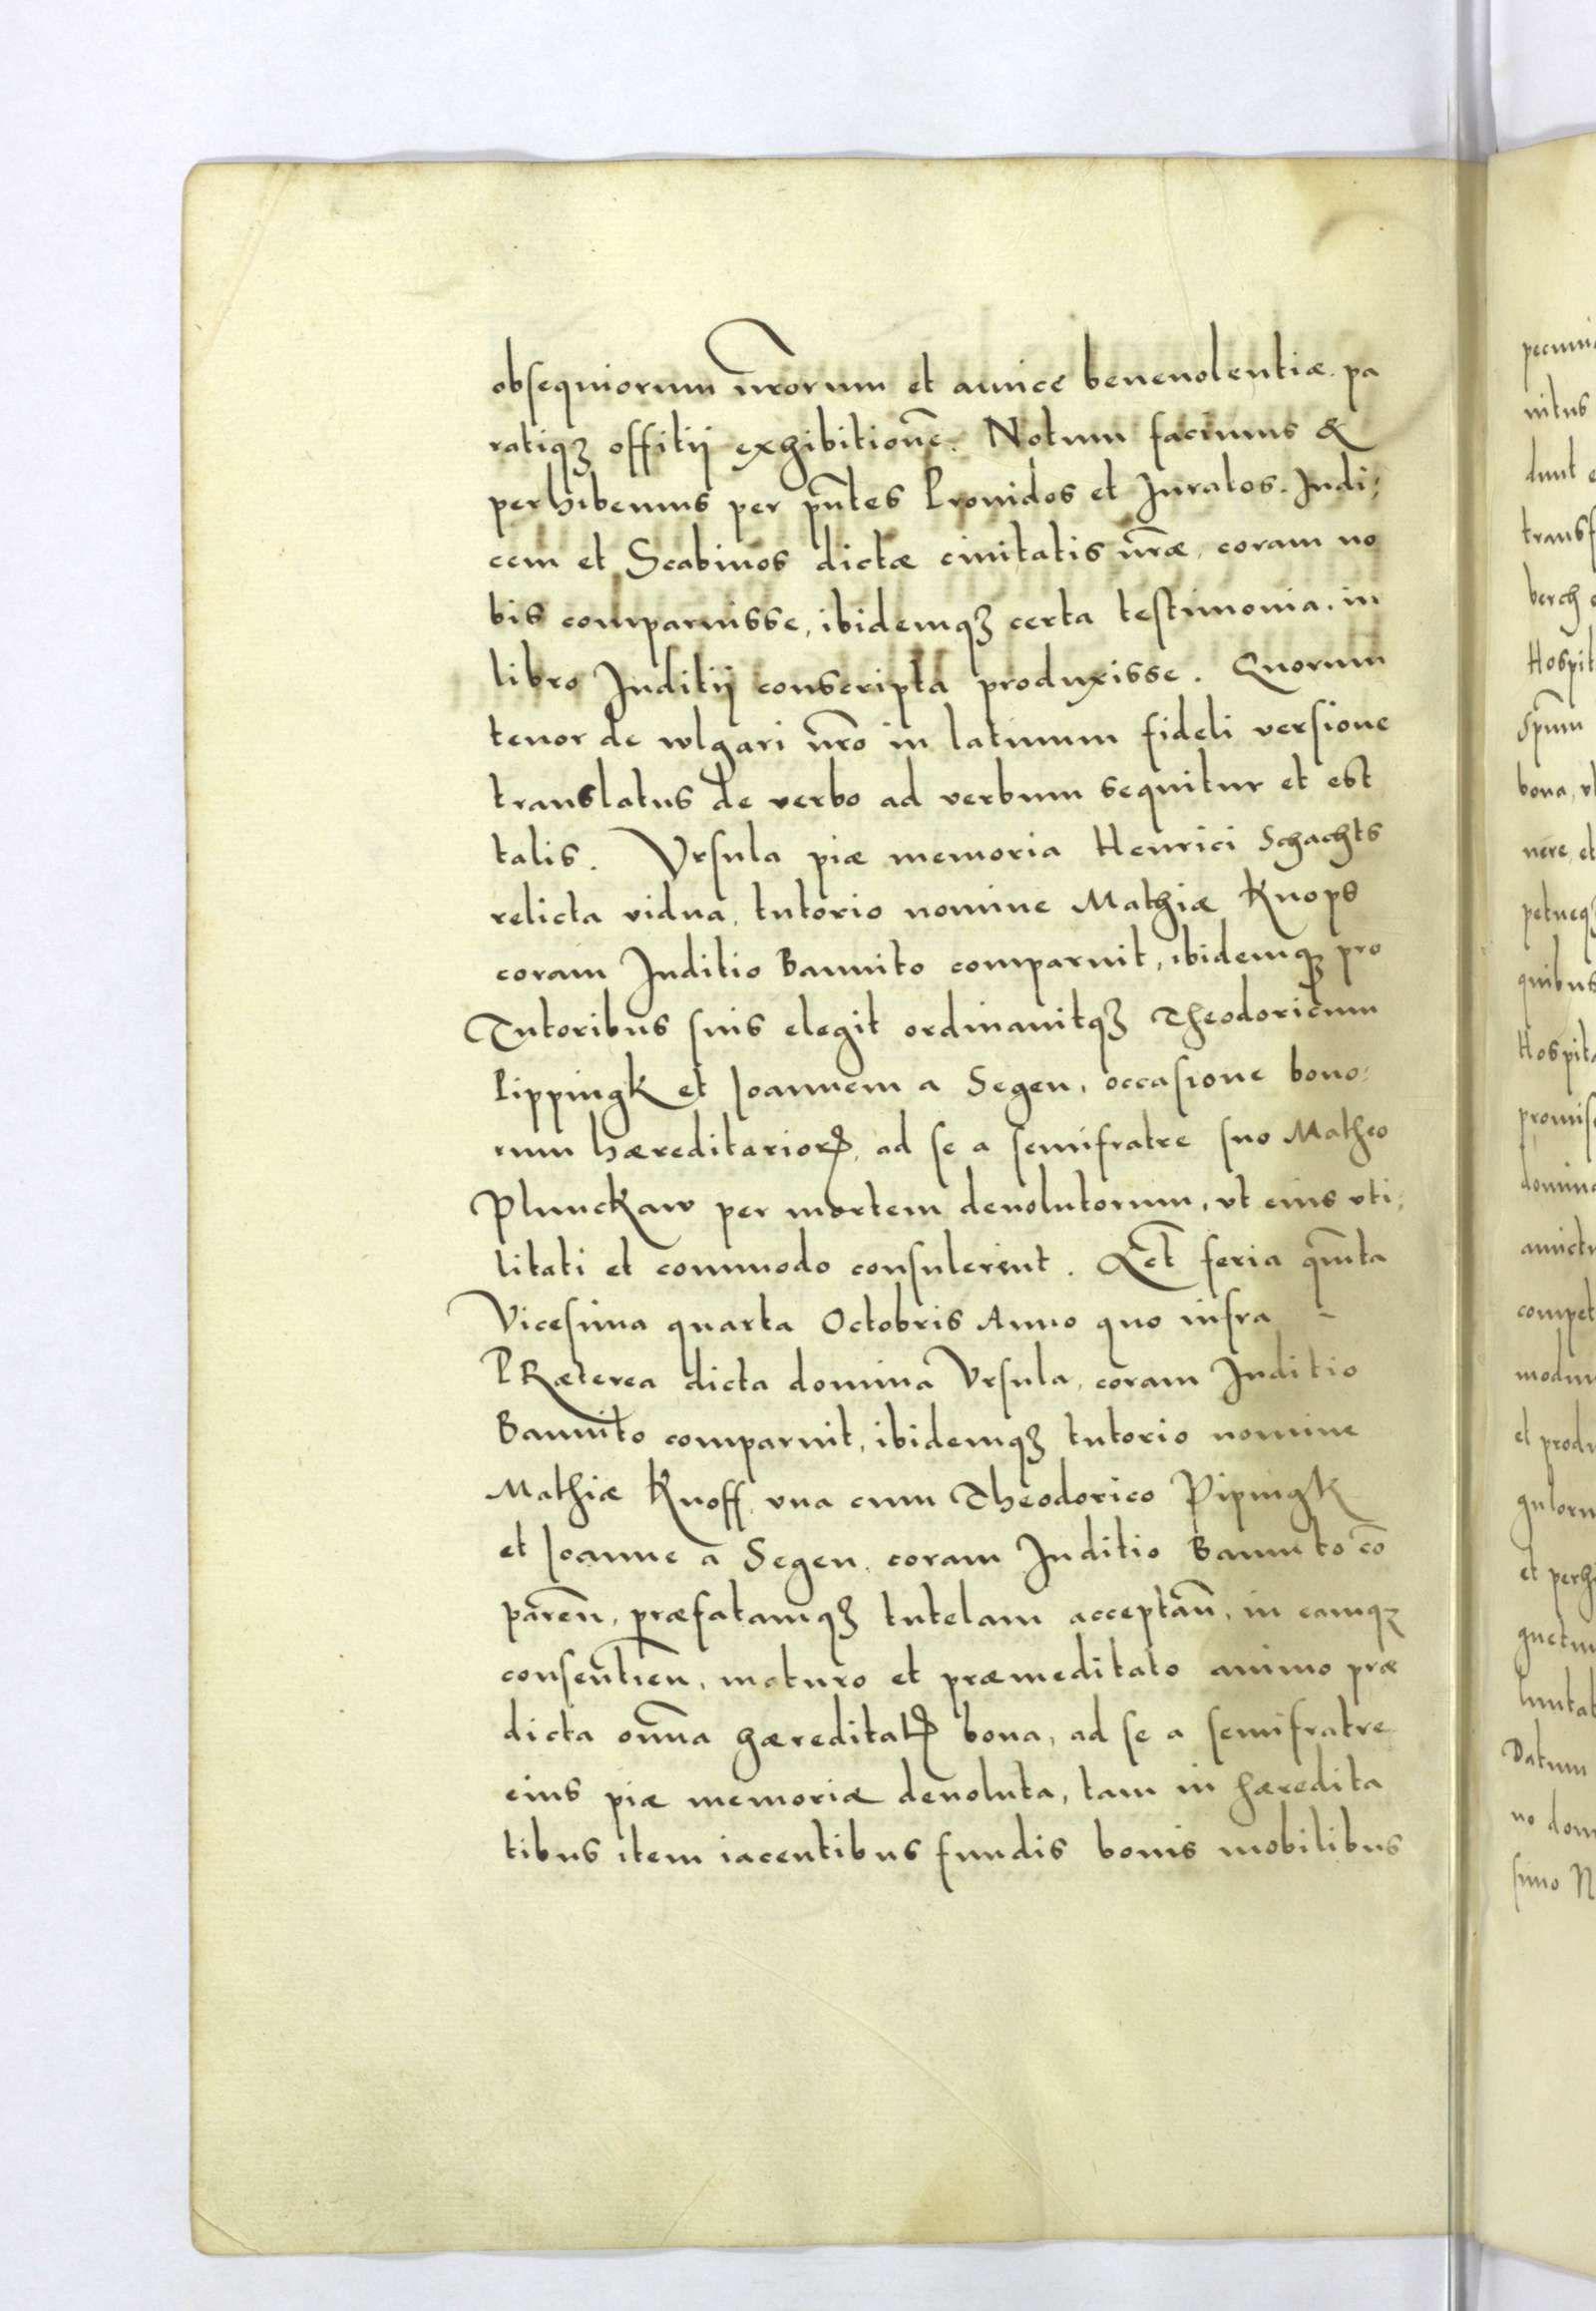 obsequiorum nr̃orum et amicę beneuolentiæ pa
ratiqꝫ offitij exhibitionẽ. Notum facimus &
perhibemus per pñtes Prouidos et Iuratos. Iudi:
cem et Scabinos dictæ ciuitatis nr̃æ, coram no
bis comparuisse, ibidemqꝫ certa testimonia in
libro Iuditij conscripta produxisse. Quorum
tenor de wlgari nr̃o in latinum fideli versione
translatus de verbo ad verbum sequitur et est
talis. Vrsula piæ memoria Henrici Schachts
relicta vidua, tutorio nomine Mathiæ Knops
coram Iuditio Bannito comparuit, ibidemqꝫ pro
Tutoribus suis elegit ordinauitqꝫ Theodoricum
Pippingk et Ioannem a Segen, occasione bono:
rum hæreditarioꝝ, ad se a semifratre suo Matheo
Plunckaw per mortem deuolutorum, vt eius vti:
litati et commodo consulerent. Act̃ feria quĩta
Vicesima quarta Octobris Anno quo infra -
PRæterea dicta domina Vrsula, coram Iuditio
Bannito comparuit, ibidemqꝫ tutorio nomine
Mathiæ Knoff, vna cum Theodorico Pipingk
et Ioanne a Segen, coram Iuditio Bannito cõ
pareñ, præfatamqꝫ tutelam acceptañ, in eamqꝫ
consentieñ, maturo et præmeditato animo præ
dicta om̃a hæreditatꝝ bona, ad se a semifratre
eius piæ memoriæ deuoluta, tam in hæredita
tibus item iacentibus fundis bonis mobilibus